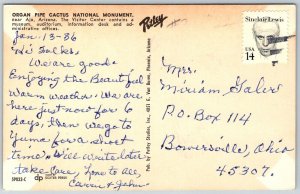 ORGAN PIPE CACTUS NATIONAL MONUMENT,
near Ajo, Arizona. The Visitor Center contains a
museum, auditorium, information desk and ad-
ministrative offices.
Petley
Jan. 13-86
Hi Folks
We are good
Enjoying the Beautiful
Warm weather. We are
here just now for 6
days, then we go to
Yuma for a short
time. Will write later
take care, Love to all,
Carrie & John
SP833-C
dp
DEXTER PRESS
Pub. by Petley Studios, Inc., 4051 E. Van Buren, Phoenix, Arizona
Sinclair Lewis
USA
14
Mrs.
Miriam Haler
P.O. Box 114
Bowersville, Ohio
45307.